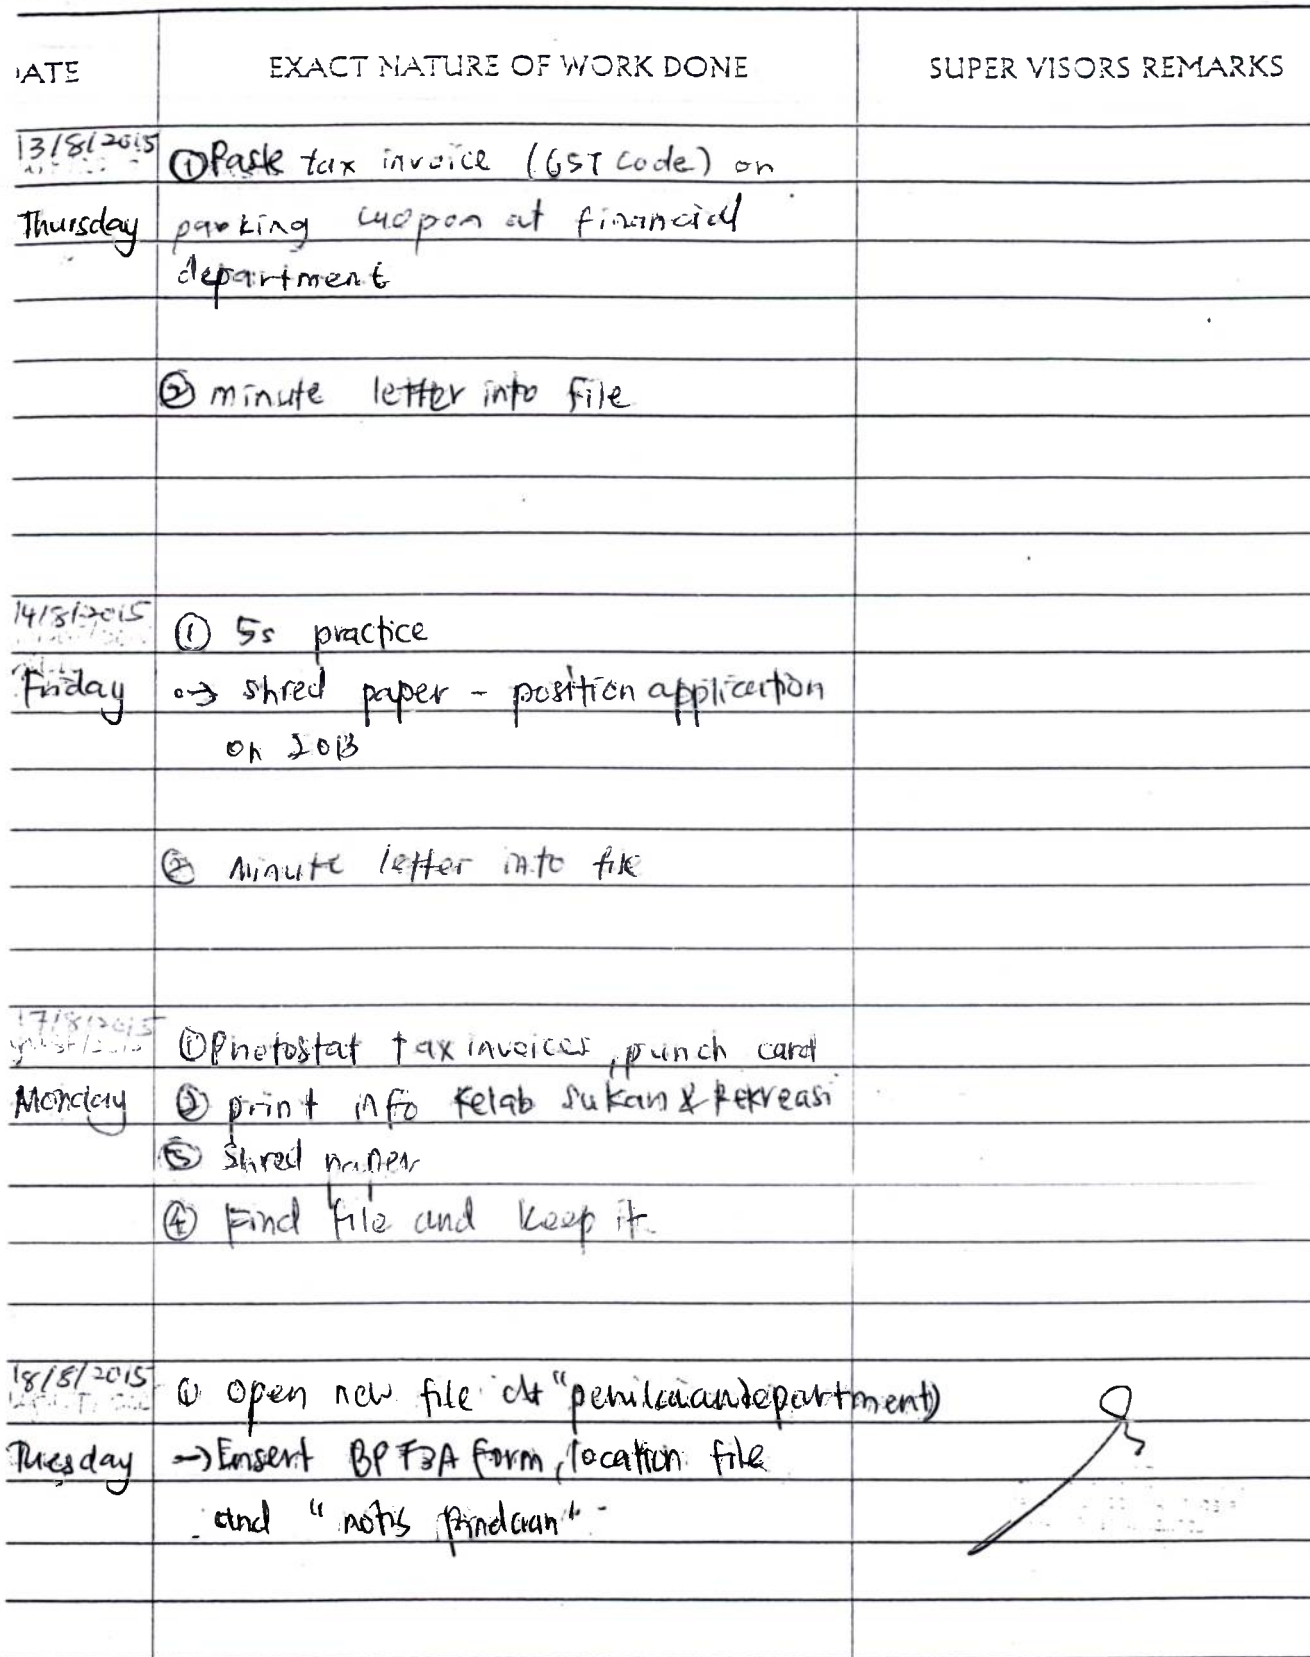 DATE EXACT NATURE OF WORK DONE SUPER VISORS REMARKS
13/8/2015 ① Paste tax invoice (GST code) on
Thursday parking cuopon at financial
department
② minute letter into file
14/8/2015 ① 5s practice
Friday → shred paper - position application
on 2013
② Minute letter into file
17/8/2015 ① Photostat tax invoices, punch card
Monday ② print info Kelab Sukan & Rekreasi
③ Shred paper
④ Find file and keep it
18/8/2015 ① Open new file at "penilaian department)
Tuesday → Insert BP F3A form, location file
and "notis pindaan"